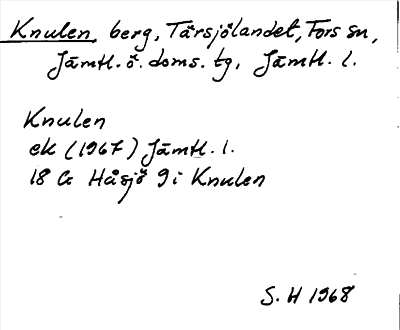 Knulen, berg, Tärsjölandet, Fors sn,
Jämtl. ö. doms. tg, Jämtl. l.
Knulen
ek (1967) Jämtl. l.
18 G Håsjö 9 i Knulen
S. H 1968